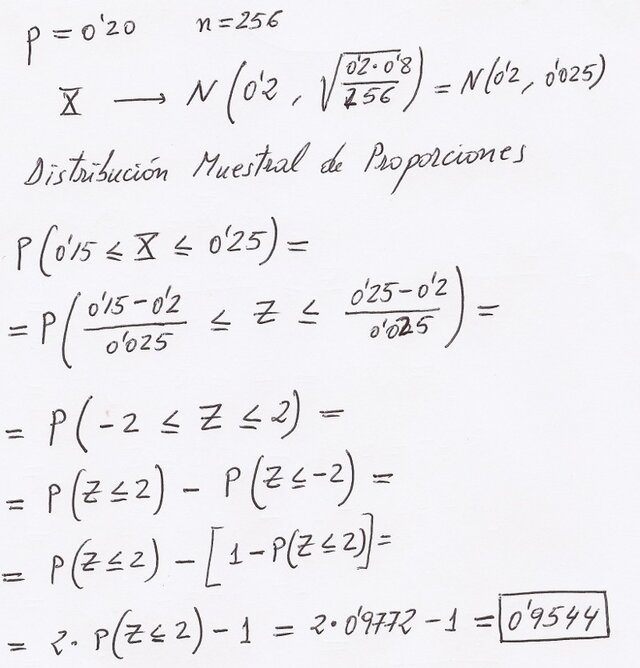 p = 0'20 n = 256
X → N(0'2, √(0'2·0'8/256)) = N(0'2, 0'025)
Distribución Muestral de Proporciones
P(0'15 ≤ X ≤ 0'25) =
= P((0'15 - 0'2)/0'025 ≤ Z ≤ (0'25 - 0'2)/0'025) =
= P(-2 ≤ Z ≤ 2) =
= P(Z ≤ 2) - P(Z ≤ -2) =
= P(Z ≤ 2) - [1 - P(Z ≤ 2)] =
= 2· P(Z ≤ 2) - 1 = 2·0'9772 - 1 = 0'9544